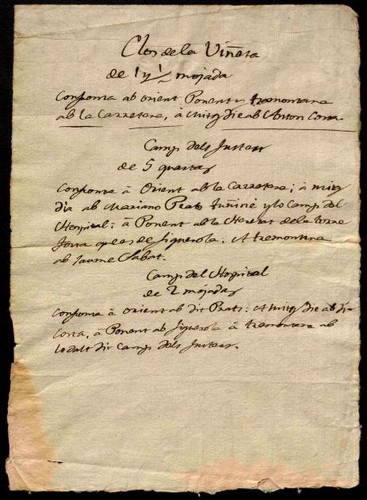 Clos de la Viñeta
de 1 y 1/2 mojada
Confronta ab orient Ponent y tremontana
ab la Carretera, à mitg die ab Anton Corra
Camp dels Juheus
de 5 quartas
Confronta à Orient ab la Carretera; à mitg
dia ab Mariano Prats y lo Camp del
Hospital; à Ponent ab la Heretat de la torre
que es de Figuerola. A tremontana
ab Jaume Sabat.
Camp del Hospital
de 2 mojadas
Confronta à orient ab dit Prats: A mitg die ab di
Corra, à Ponent ab Figuerola à tremontana ab
lo dalt dit Camp dels Juheus.